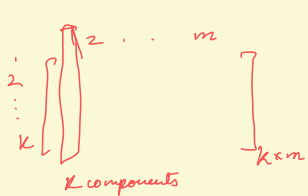 1 2 . . m
1
2
⋮
k
k×m
k components